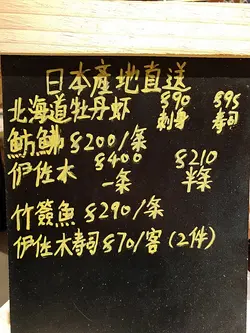 日本產地直送
北海道牡丹虾 $90 $95
刺身 寿司
魴鮄 $200/条
伊佐木 $400 $210
一条 半条
竹簽魚 $290/条
伊佐木寿司 $70/客 (2件)